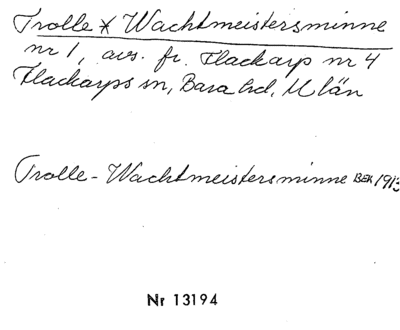 Trolle * Wachtmeistersminne
nr 1, avs. fr. Flackarp nr 4
Flackarps sn, Bara hd, M län
Trolle-Wachtmeistersminne BEK 1913
Nr 13194